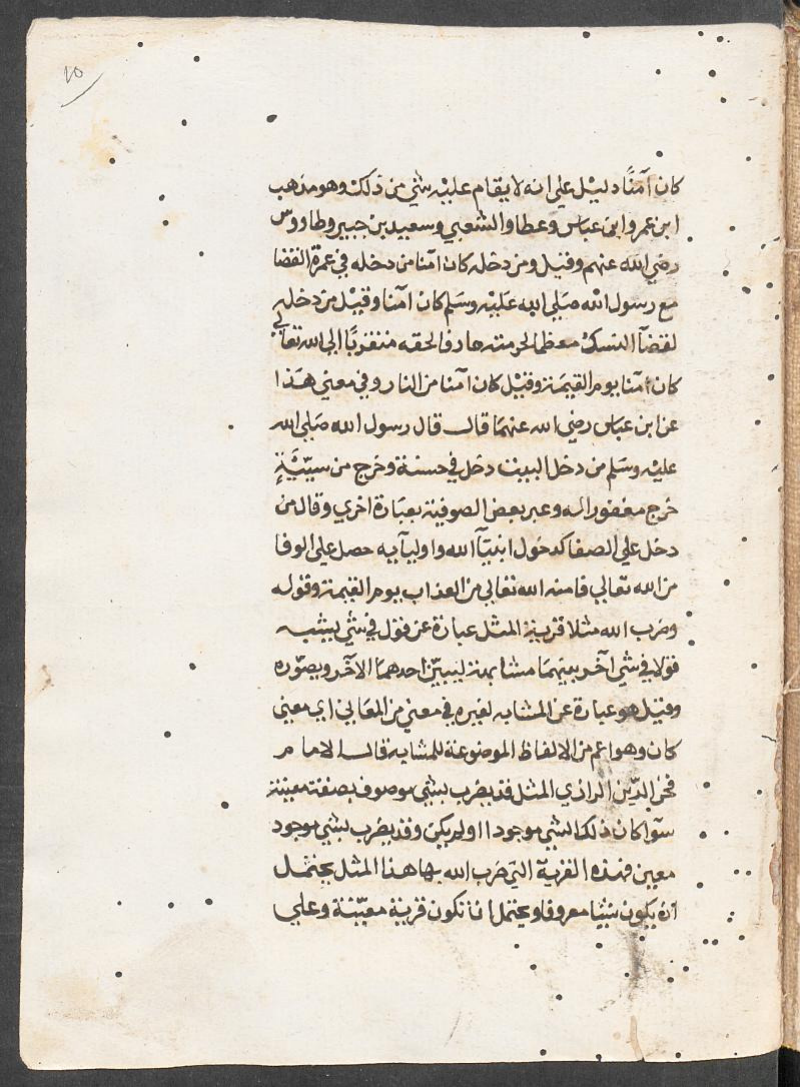 ١٥
كان آمنًا دليل على انه لا يقام عليه شي من ذلك وهو مذهب
ابن عمر وابن عباس وعطا والشعبي وسعيد بن جبير وطاووس
رضي الله عنهم وقيل ومن دخله كان امنا من دخله في عمرة القضا
مع رسول الله صَلى الله عَليه وسَلم كان امنا وقيل من دخله
لقضآ النسك معظما لحرمته عارفا لحقه متقربًا الى الله تعالى
كان أمنا يوم القيمة وقيل كان امنا من النار وفي معنى هَذا
عن ابن عبَاس رضي الله عنهمَا قال قال رسول الله صَلى الله
عليه وسَلم من دخل البيت دخل في حسنة وخرج من سيّئَةٍ
خرج مغفورا له وعبر بعض الصوفية بعبَارة اخري وقال من
دخل على الصفا كدخول انبيَآ الله واوليآيه حصل على الوفا
من الله تعالى فامنه الله تعالى من العذاب يوم القيمة وقوله
وضرب الله مثلا قرية المثل عبارة عن قول في شي يشبه
قولا في شي آخر بينهمَا مشابهة ليبيّن احدهمَا الآخر ويصوّره
وقيل هو عبارة عن المشابه لغيره في معنى من المعَاني اي معنى
كان وهو اعم من الالفاظ الموضوعة للمشابه قال الامام
فخر الدّين الرازي المثل قد يضرب بشي موصوف بصفة معيّنة
سوآ كان ذلك الشي موجودا او لم يكن وقد يضرب بشي موجود
معين فهذه القرية التي ضَرب الله بها هذا المثل يحتمل
ان يكون شيئا معروفا ويحتمل ان تكون قرية معيّنة وعلى